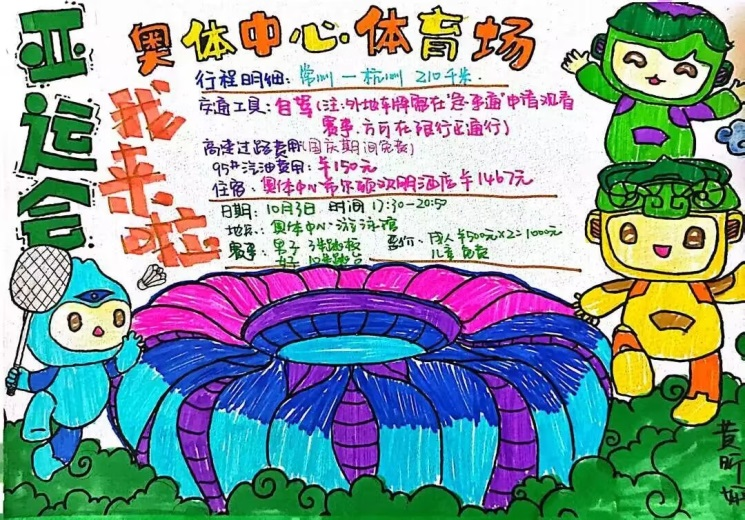 亚运会
我来啦
奥体中心·体育场
行程明细: 常州 — 杭州 210千米.
交通工具: 自驾(注:外地车牌需在急事通申请观看
赛事.方可在限行区通行)
高速过路费用(国庆期间免费)
95#汽油费用: ¥150元
住宿: 奥体中心希尔顿欢朋酒店 ¥1467元
日期: 10月3日 时间 17:30-20:50
地点: 奥体中心·游泳馆
赛事: 男子 3米跳板 票价: 成人¥500元×2=1000元
女子 10米跳台 儿童 免费
黄昕